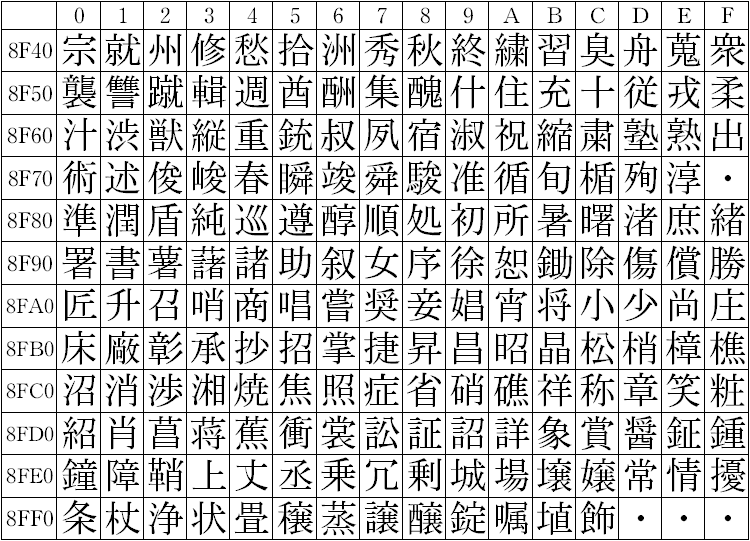 0 1 2 3 4 5 6 7 8 9 A B C D E F
8F40 宗 就 州 修 愁 拾 洲 秀 秋 終 繍 習 臭 舟 蒐 衆
8F50 襲 讐 蹴 輯 週 酋 酬 集 醜 什 住 充 十 従 戎 柔
8F60 汁 渋 獣 縦 重 銃 叔 夙 宿 淑 祝 縮 粛 塾 熟 出
8F70 術 述 俊 峻 春 瞬 竣 舜 駿 准 循 旬 楯 殉 淳 ・
8F80 準 潤 盾 純 巡 遵 醇 順 処 初 所 暑 曙 渚 庶 緒
8F90 署 書 薯 藷 諸 助 叙 女 序 徐 恕 鋤 除 傷 償 勝
8FA0 匠 升 召 哨 商 唱 嘗 奨 妾 娼 宵 将 小 少 尚 庄
8FB0 床 廠 彰 承 抄 招 掌 捷 昇 昌 昭 晶 松 梢 樟 樵
8FC0 沼 消 渉 湘 焼 焦 照 症 省 硝 礁 祥 称 章 笑 粧
8FD0 紹 肖 菖 蒋 蕉 衝 裳 訟 証 詔 詳 象 賞 醤 鉦 鍾
8FE0 鐘 障 鞘 上 丈 丞 乗 冗 剰 城 場 壌 嬢 常 情 擾
8FF0 条 杖 浄 状 畳 穣 蒸 譲 醸 錠 嘱 埴 飾 ・ ・ ・